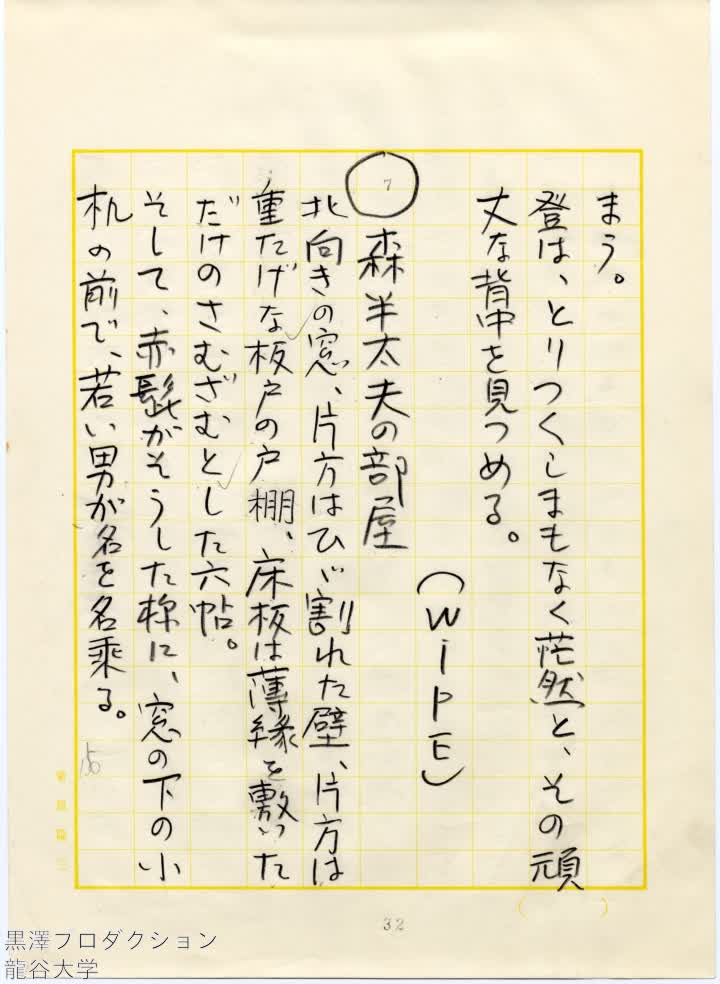 まう。
登は、とりつくしまもなく茫然と、その頑
丈な背中を見つめる。
(WiPE)
7 森半太夫の部屋
北向きの窓、片方はひゞ割れた壁、片方は
重たげな板戸の戸棚、床板は薄縁を敷いた
だけのさむざむとした六帖。
そして、赤髭がそうした様に、窓の下の小
机の前で、若い男が名を名乗る。
32
黒澤プロダクション
龍谷大学